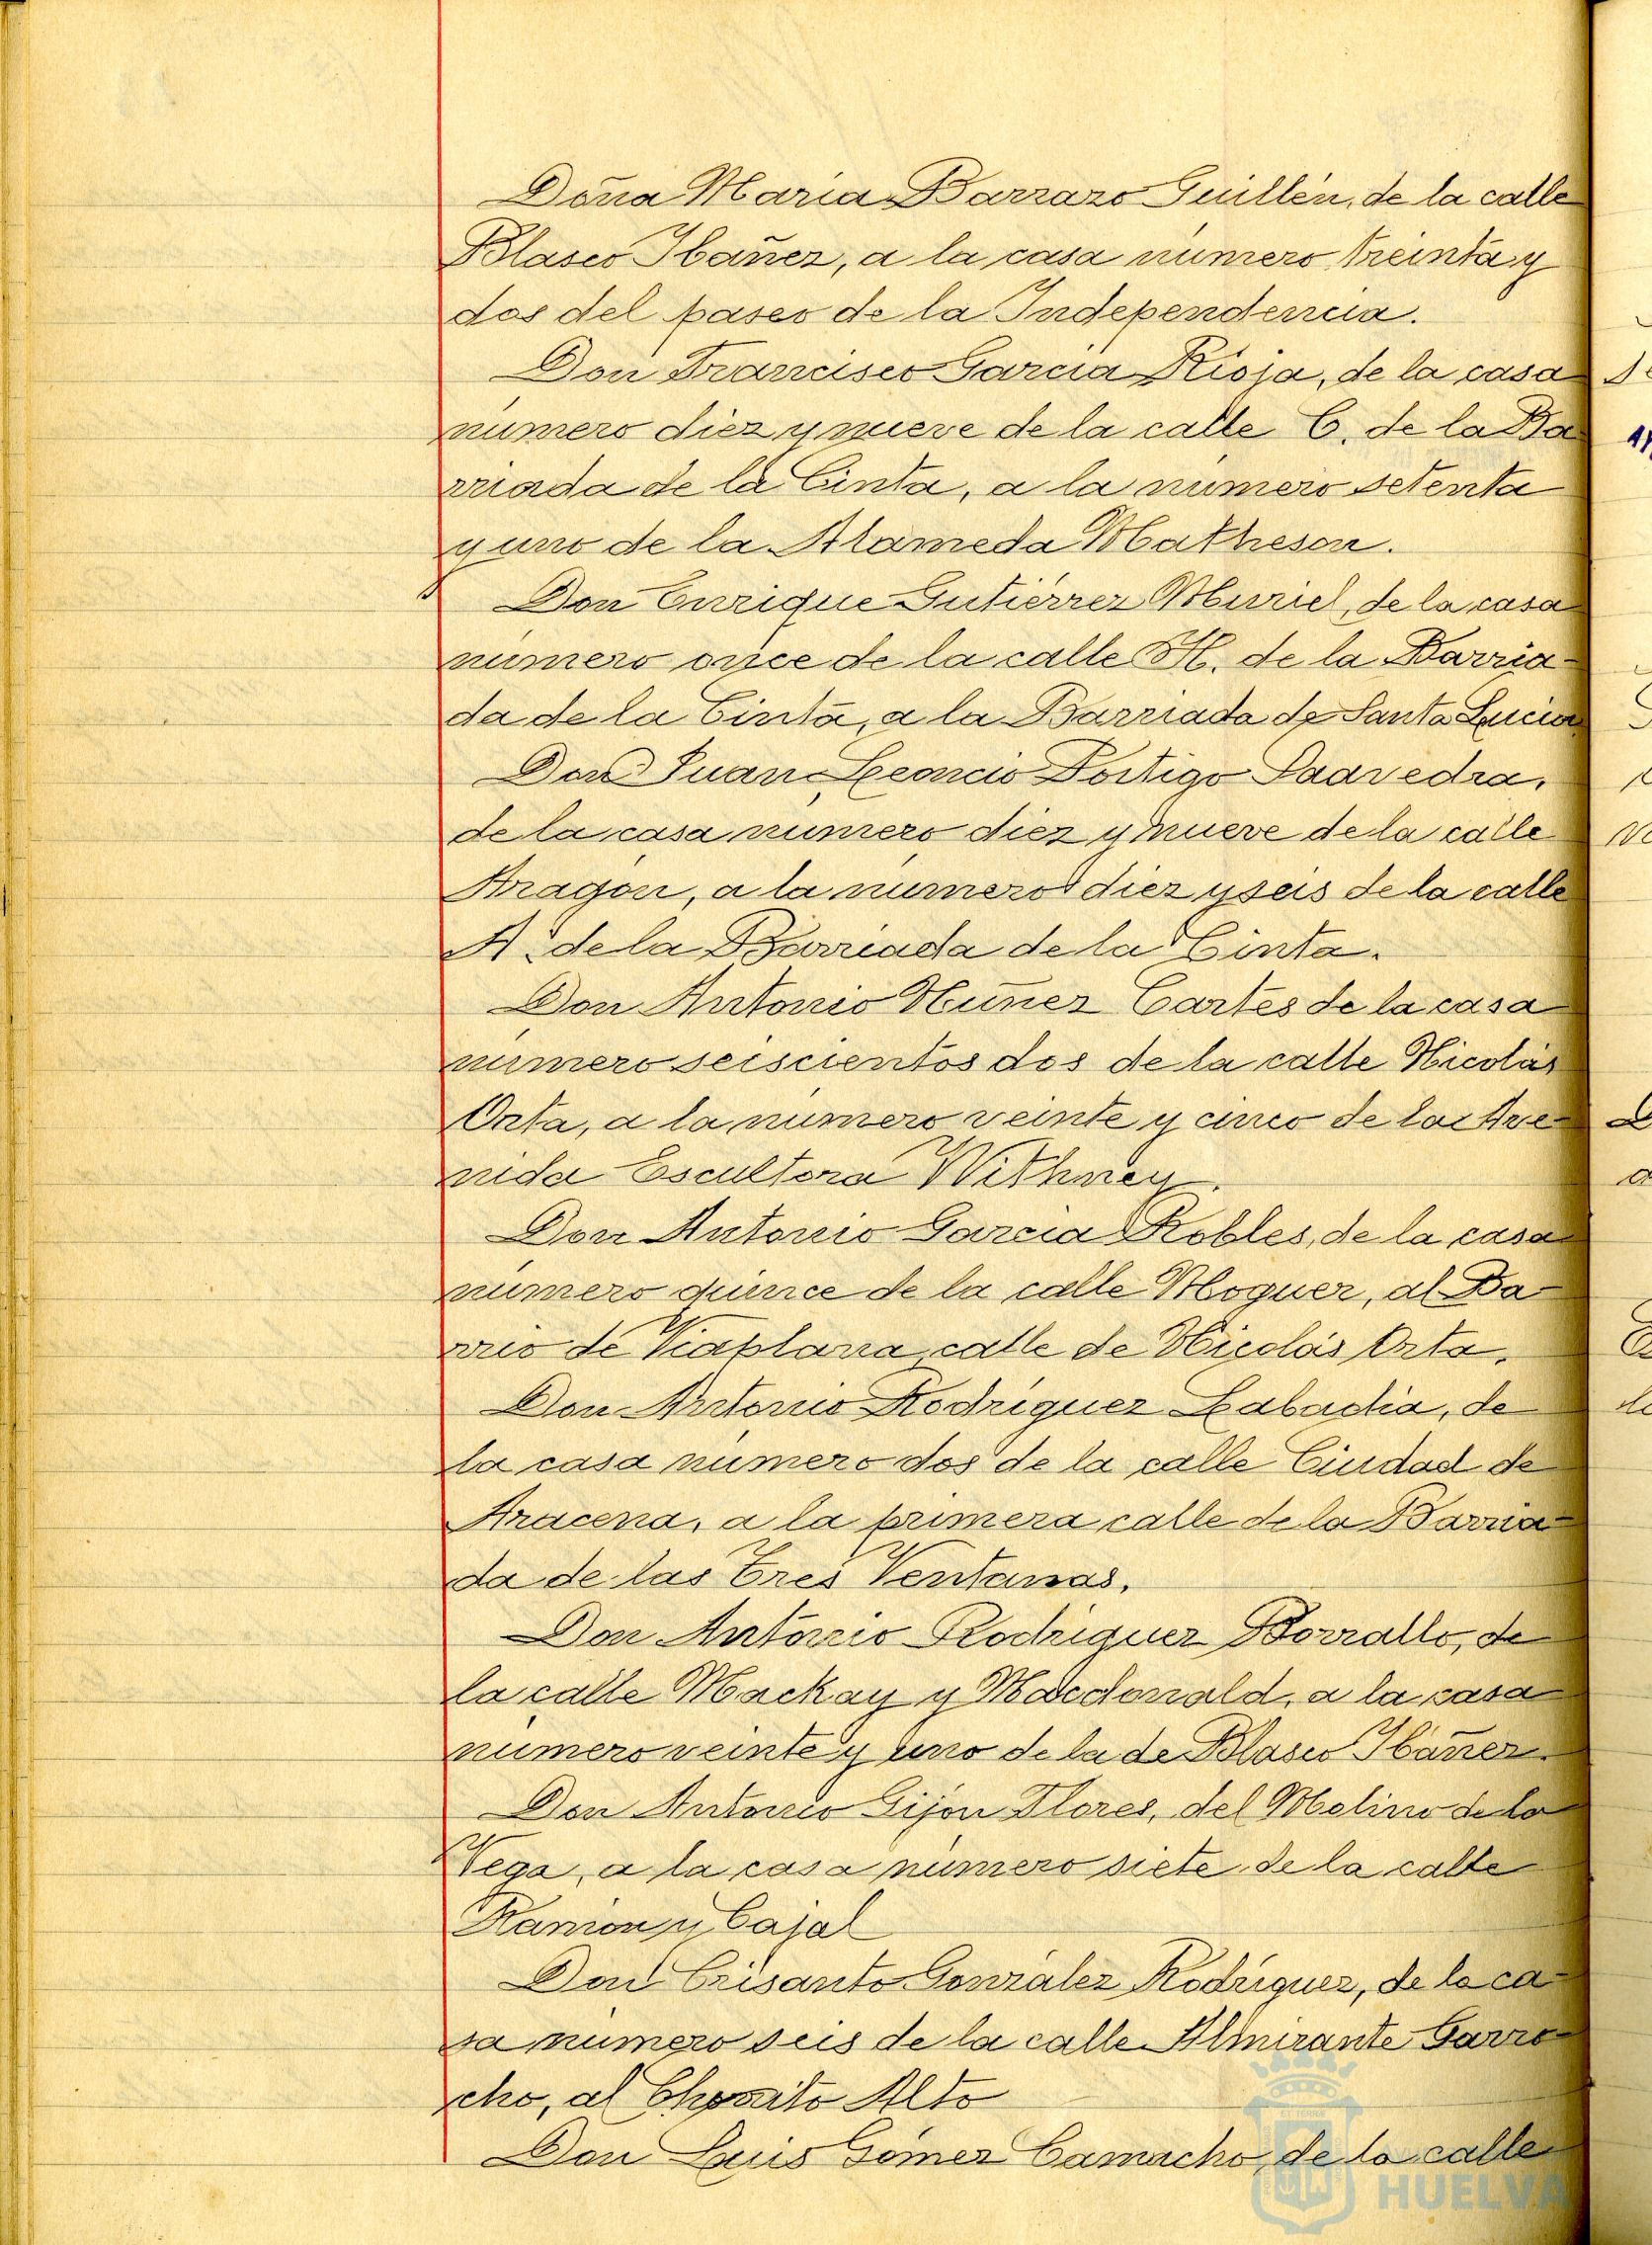 Doña María Barrazo Guillén, de la calle
Blasco Ibañez, a la casa número treinta y
dos del paseo de la Independencia.
Don Francisco García Rioja, de la casa
número diez y nueve de la calle C. de la Ba
rriada de la Cinta, a la número setenta
y uno de la Alameda Matheson.
Don Enrique Gutiérrez Muriel, de la casa
número once de la calle H. de la Barria-
da de la Cinta, a la Barriada de Santa Lucia
Don Juan Leoncio Postigo Saavedra,
de la casa número diez y nueve de la calle
Aragón, a la número diez y seis de la calle
A. de la Barriada de la Cinta.
Don Antonio Núñez Cartes de la casa
número seiscientos dos de la calle Nicolás
Orta, a la número veinte y cinco de la Ave-
nida Escultora Withney.
Don Antonio García Robles, de la casa
número quince de la calle Moguer, al Ba-
rrio de Viaplana calle de Nicolás Orta.
Don Antonio Rodríguez Labadía, de
la casa número dos de la calle Ciudad de
Aracena, a la primera calle de la Barria-
da de las Tres Ventanas.
Don Antonio Rodríguez Borrallo, de
la calle Mackay y Macdonald, a la casa
número veinte y uno de la de Blasco Ibañez.
Don Antonio Gijón Flores, del Molino de la
Vega, a la casa número siete de la calle
Ramon y Cajal
Don Crisanto González Rodríguez, de la ca-
sa número seis de la calle Almirante Garro-
cho, al Chorrito Alto
Don Luis Gómez Camacho, de la calle
HUELVA